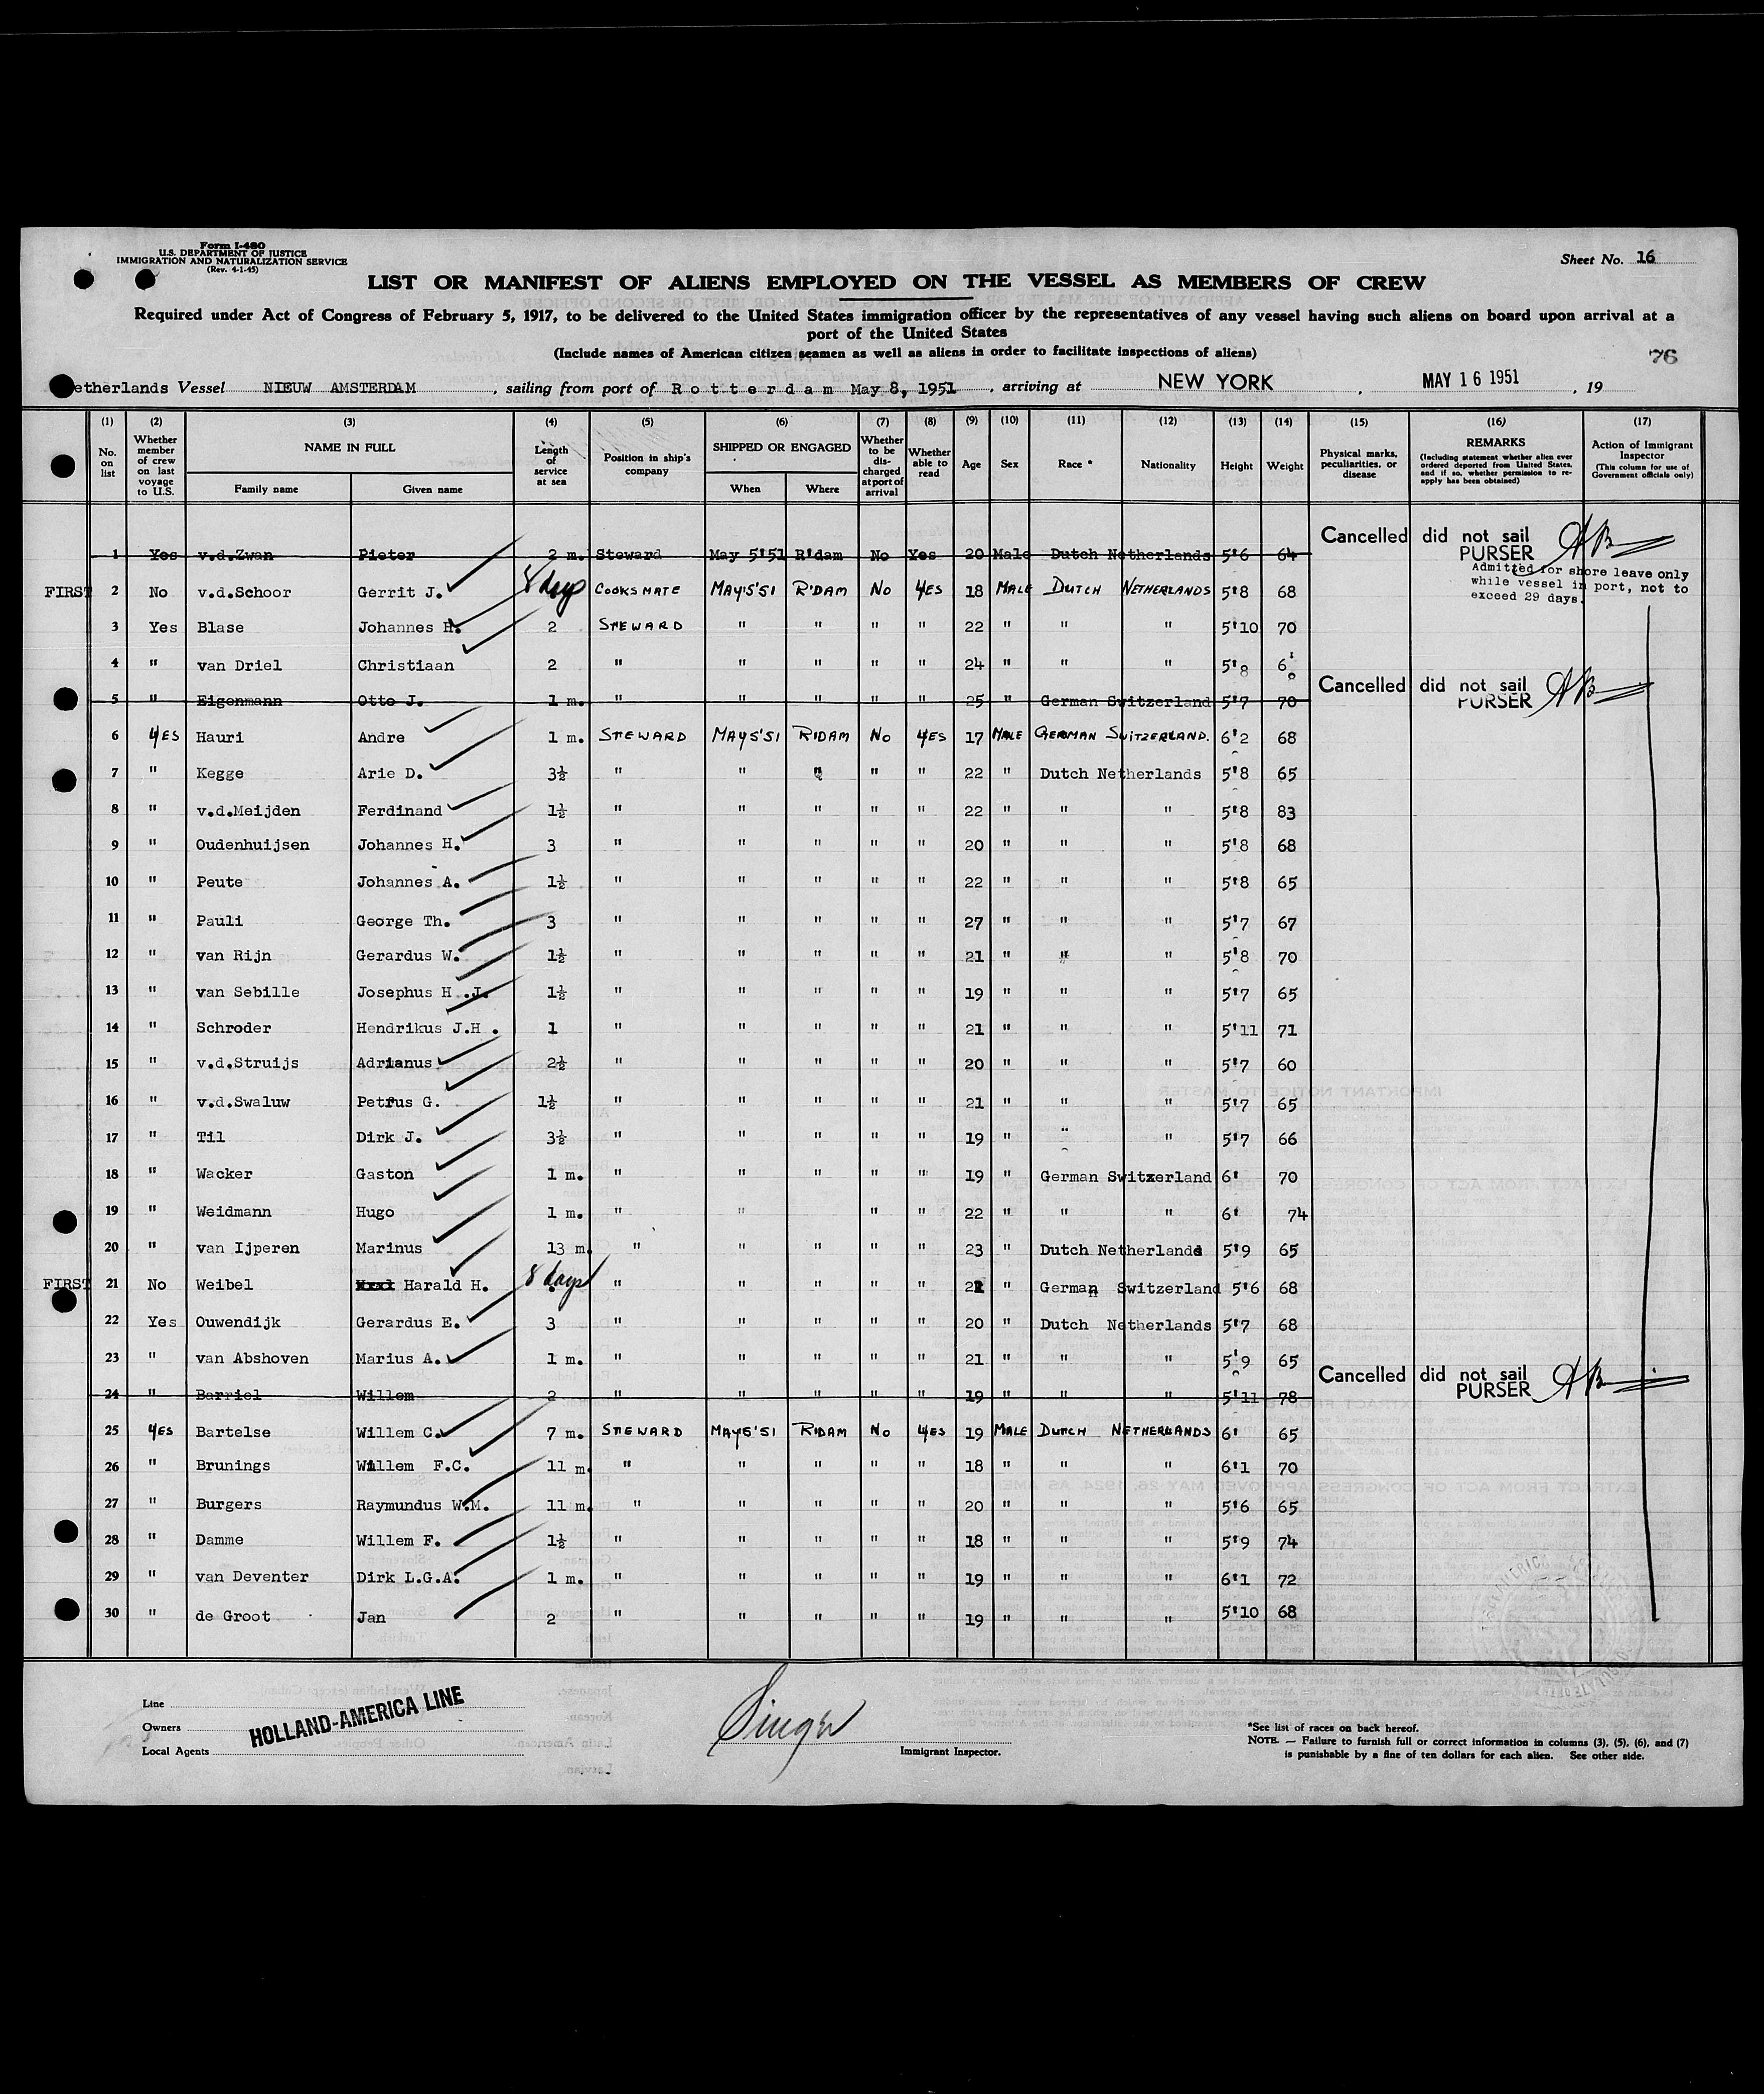 Form I-480
U.S. DEPARTMENT OF JUSTICE
IMMIGRATION AND NATURALIZATION SERVICE
(Rev. 4-1-45)
Sheet No. 16
LIST OR MANIFEST OF ALIENS EMPLOYED ON THE VESSEL AS MEMBERS OF CREW
Required under Act of Congress of February 5, 1917, to be delivered to the United States immigration officer by the representatives of any vessel having such aliens on board upon arrival at a
port of the United States
(Include names of American citizen seamen as well as aliens in order to facilitate inspections of aliens)
76
etherlands Vessel NIEUW AMSTERDAM , sailing from port of Rotterdam May 8, 1951 , arriving at NEW YORK , MAY 16 1951 , 19
(1) (2) (3) (4) (5) (6) (7) (8) (9) (10) (11) (12) (13) (14) (15) (16) (17)
No. on list Whether member of crew on last voyage to U.S. NAME IN FULL Family name Given name Length of service at sea Position in ship's company SHIPPED OR ENGAGED When Where Whether to be discharged at port of arrival Whether able to read Age Sex Race * Nationality Height Weight Physical marks, peculiarities, or disease REMARKS (Including statement whether alien ever ordered deported from United States, and if so, whether permission to re-apply has been obtained) Action of Immigrant Inspector (This column for use of Government officials only)
1 Yes v.d.Zwan Pieter 2 m. Steward May 5'51 R'dam No Yes 20 Male Dutch Netherlands 5'6 64 Cancelled did not sail PURSER
FIRST 2 No v.d.Schoor Gerrit J. 8 days COOKSMATE MAY 5'51 R'DAM No YES 18 MALE DUTCH NETHERLANDS 5'8 68 Admitted for shore leave only while vessel in port, not to exceed 29 days.
3 Yes Blase Johannes H. 2 STEWARD " " " " 22 " " " 5'10 70
4 " van Driel Christiaan 2 " " " " " 24 " " " 5'8 6
5 " Eigenmann Otto J. 1 m. " " " " " 25 " German Switzerland 5'7 70 Cancelled did not sail PURSER
6 YES Hauri Andre 1 m. STEWARD MAY 5'51 R'DAM No YES 17 MALE GERMAN SWITZERLAND. 6'2 68
7 " Kegge Arie D. 3½ " " " " " 22 " Dutch Netherlands 5'8 65
8 " v.d.Meijden Ferdinand 1½ " " " " " 22 " " " 5'8 83
9 " Oudenhuijsen Johannes H. 3 " " " " " 20 " " " 5'8 68
10 " Peute Johannes A. 1½ " " " " " 22 " " " 5'8 65
11 " Pauli George Th. 3 " " " " " 27 " " " 5'7 67
12 " van Rijn Gerardus W. 1½ " " " " " 21 " " " 5'8 70
13 " van Sebille Josephus H .J. 1½ " " " " " 19 " " " 5'7 65
14 " Schroder Hendrikus J.H . 1 " " " " " 21 " " " 5'11 71
15 " v.d.Struijs Adrianus 2½ " " " " " 20 " " " 5'7 60
16 " v.d.Swaluw Petrus G. 1½ " " " " " 21 " " " 5'7 65
17 " Til Dirk J. 3½ " " " " " 19 " " " 5'7 66
18 " Wacker Gaston 1 m. " " " " " 19 " German Switzerland 6' 70
19 " Weidmann Hugo 1 m. " " " " 22 " " " 6' 74
20 " van Ijperen Marinus 13 m. " " " " " 23 " Dutch Netherlands 5'9 65
FIRST 21 No Weibel Harald H. 8 days " " " " " 22 " German Switzerland 5'6 68
22 Yes Ouwendijk Gerardus E. 3 " " " " " 20 " Dutch Netherlands 5'7 68
23 " van Abshoven Marius A. 1 m. " " " " " 21 " " " 5'9 65
24 " Barriel Willem 2 " " " " " 19 " " " 5'11 78 Cancelled did not sail PURSER
25 YES Bartelse Willem C. 7 m. STEWARD MAY 5'51 R'DAM No YES 19 MALE DUTCH NETHERLANDS 6' 65
26 " Brunings Willem F.C. 11 m. " " " " " 18 " " " 6'1 70
27 " Burgers Raymundus W.M. 11 m. " " " " " 20 " " " 5'6 65
28 " Damme Willem F. 1½ " " " " " 18 " " " 5'9 74
29 " van Deventer Dirk L.G.A. 1 m. " " " " " 19 " " " 6'1 72
30 " de Groot Jan 2 " " " " " 19 " " " 5'10 68
Line
Owners HOLLAND-AMERICA LINE
Local Agents
Singer
Immigrant Inspector.
*See list of races on back hereof.
NOTE. — Failure to furnish full or correct information in columns (3), (5), (6), and (7)
is punishable by a fine of ten dollars for each alien. See other side.